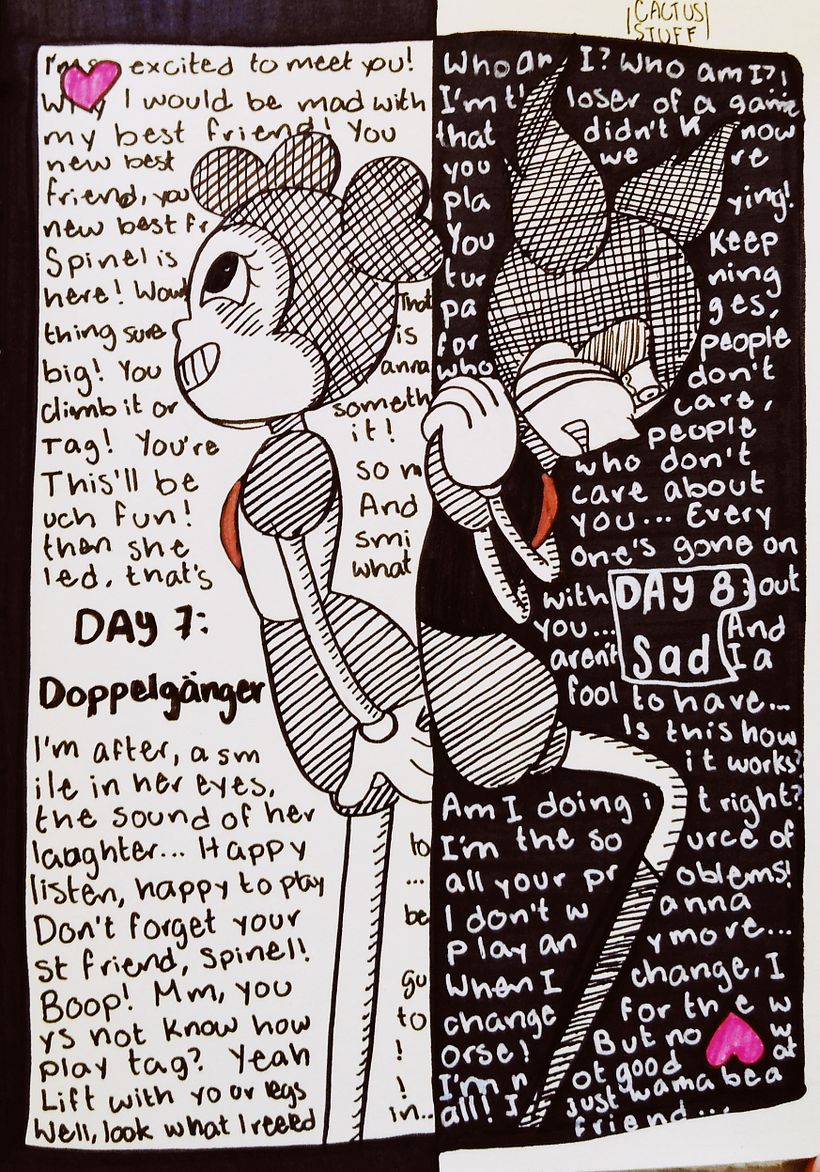 CACTUS
STUFF
I'm so excited to meet you!
Why I would be mad with
my best friend! You
new best
friend, you
new best fr
Spinel is
here! Wow
thing sure That
is
big! You anna
climb it or someth
it!
Tag! You're
This'll be so m
uch fun! And
then she smi
led, that's what
DAY 7:
Doppelgänger
I'm after, a sm
ile in her eyes,
the sound of her
laughter... Happy to
listen, happy to play ...
Don't forget your be
st friend, Spinel!
Boop! Mm, you gu
ys not know how to
play tag? Yeah !
Lift with your legs !
Well, look what I reeed in..
Who am I? Who am I?!
I'm t' loser of a game
that didn't k now
you we re
pla ying!
You keep
tur ning
pa ges,
for people
who don't
care,
people
who don't
care about
you... Every
one's gone on
with out
you... And
aren't I a
DAY 8:
Sad
fool to have...
Is this how
it works?
Am I doing i t right?
I'm the so urce of
all your pr oblems!
I don't w anna
play an ymore...
When I change, I
change for the w
orse! But no w at
I'm n ot good
all! I just wanna be a
friend...